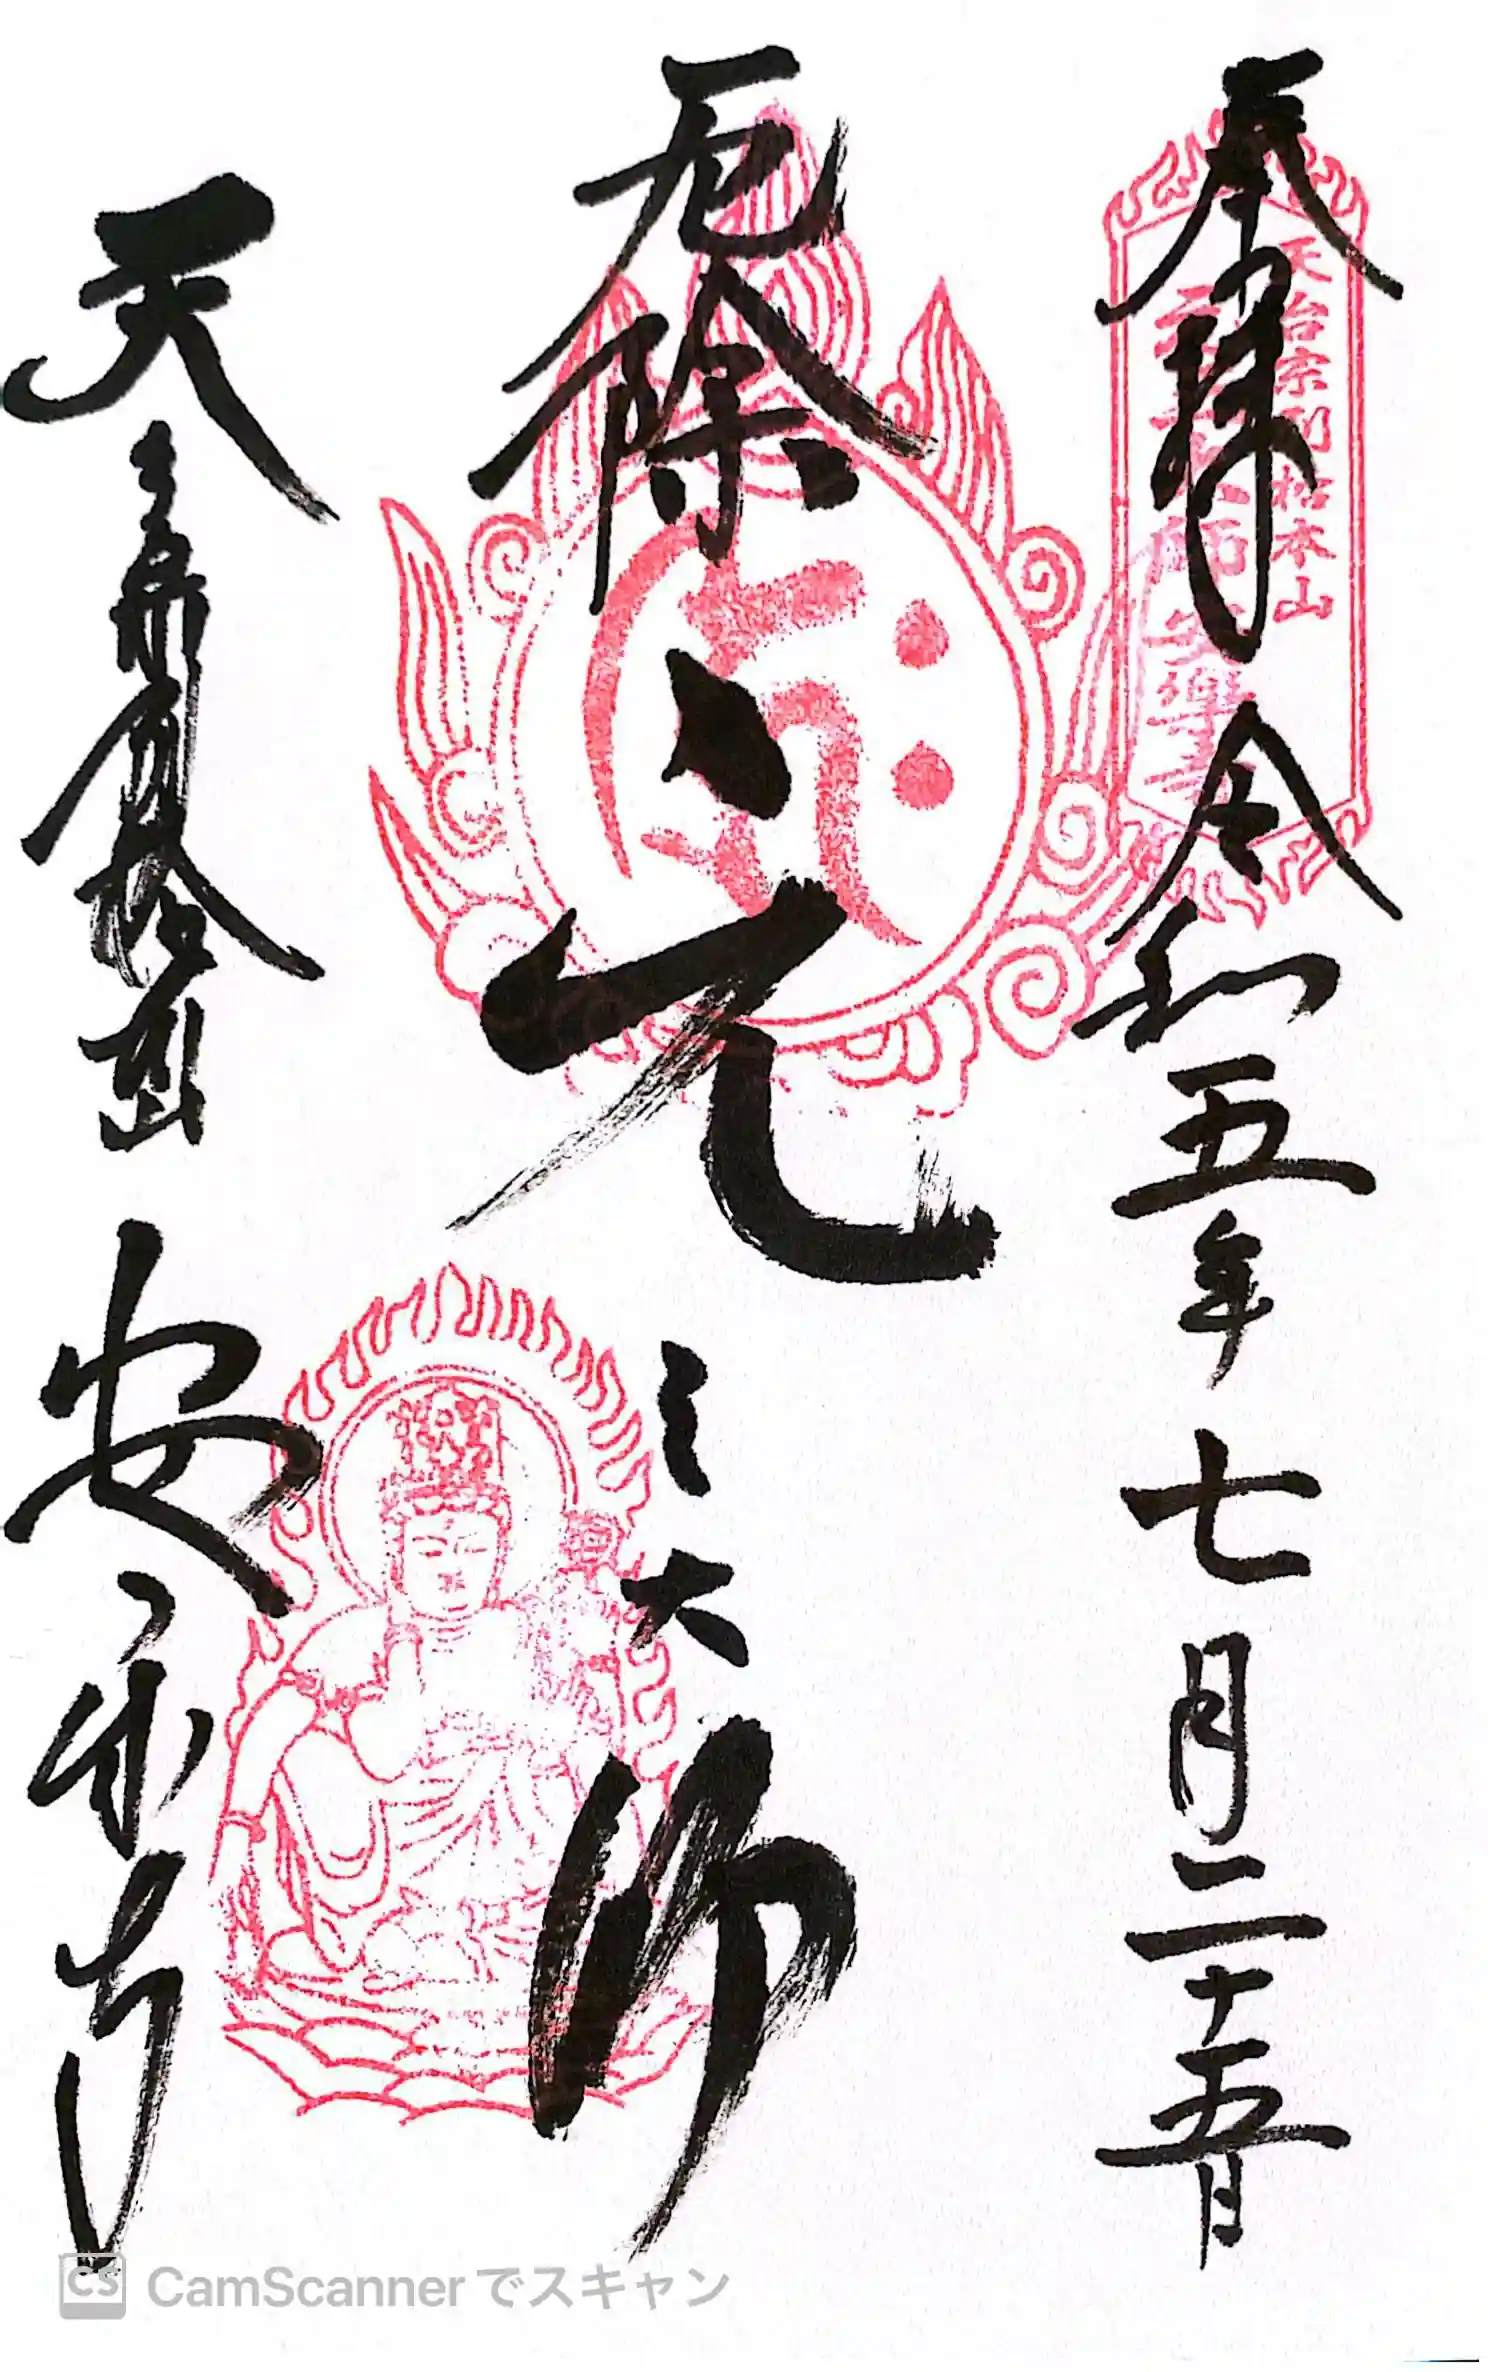 奉拝 令和五年七月二十五日
天台宗別格本山
元三大師 安樂寺
厄除
元三大師
天台宗別格本山 安楽寺
CS CamScanner でスキャン